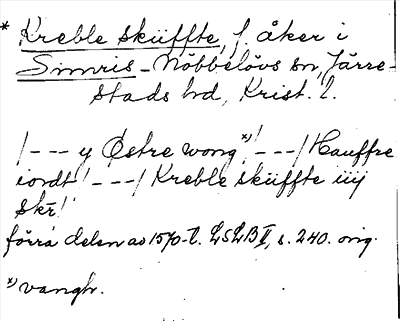 * Kreble skiiffte, f. åker i
Simris-Nöbbelövs sn, Järre-
stads hd, Krist. l.
/---y Østre wong x)!---/ Hauffre
iordt!---/ Kreble skiiffte iiij
Skr!
förra delen av 1570-t. LSLB II, s. 240. orig.
x) vangh.